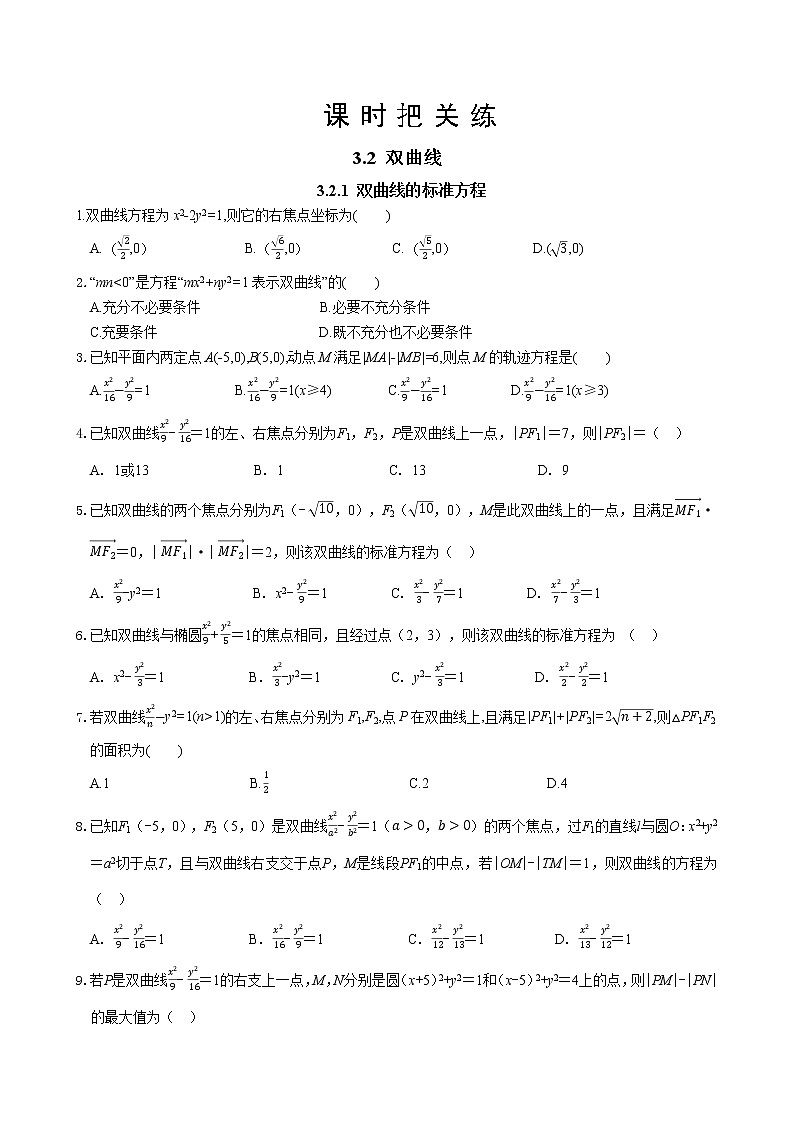 课 时 把 关 练
3.2 双曲线
3.2.1 双曲线的标准方程
1.双曲线方程为 x²-2y²=1,则它的右焦点坐标为( )
A. (√2/2,0) B. (√6/2,0) C. (√5/2,0) D.(√3,0)
2.“mn<0”是方程“mx²+ny²=1 表示双曲线”的( )
A.充分不必要条件 B.必要不充分条件
C.充要条件 D.既不充分也不必要条件
3.已知平面内两定点 A(-5,0),B(5,0),动点 M 满足|MA|-|MB|=6,则点 M 的轨迹方程是( )
A.x²/16−y²/9=1 B.x²/16−y²/9=1(x≥4) C.x²/9−y²/16=1 D.x²/9−y²/16=1(x≥3)
4.已知双曲线x²/9−y²/16=1的左、右焦点分别为F₁，F₂，P是双曲线上一点，|PF₁|=7，则|PF₂|=（ ）
A．1或13 B．1 C．13 D．9
5.已知双曲线的两个焦点分别为F₁（−√10，0），F₂（√10，0），M是此双曲线上的一点，且满足MF₁→·
MF₂→=0，|MF₁→|·|MF₂→|=2，则该双曲线的标准方程为（ ）
A．x²/9−y²=1 B．x²−y²/9=1 C．x²/3−y²/7=1 D．x²/7−y²/3=1
6.已知双曲线与椭圆x²/9+y²/5=1的焦点相同，且经过点（2，3），则该双曲线的标准方程为 （ ）
A．x²−y²/3=1 B．x²/3−y²=1 C．y²−x²/3=1 D．x²/2−y²/2=1
7.若双曲线x²/n−y²=1(n>1)的左、右焦点分别为 F₁,F₂,点 P 在双曲线上,且满足|PF₁|+|PF₂|=2√(n+2),则△PF₁F₂
的面积为( )
A.1 B.1/2 C.2 D.4
8.已知F₁（−5，0），F₂（5，0）是双曲线x²/a²−y²/b²=1（a＞0，b＞0）的两个焦点，过F₁的直线l与圆O：x²+y²
=a²切于点T，且与双曲线右支交于点P，M是线段PF₁的中点，若|OM|−|TM|=1，则双曲线的方程为
（ ）
A．x²/9−y²/16=1 B．x²/16−y²/9=1 C．x²/12−y²/13=1 D．x²/13−y²/12=1
9.若P是双曲线x²/9−y²/16=1的右支上一点，M，N分别是圆（x+5）²+y²=1和（x−5）²+y²=4上的点，则|PM|−|PN|
的最大值为（ ）